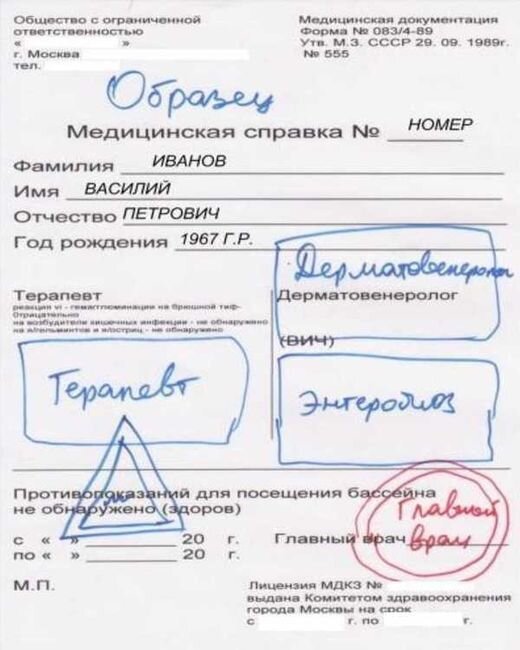 Общество с ограниченной
ответственностью
« »
г. Москва
тел.
Медицинская документация
Форма № 083/4-89
Утв. М.З. СССР 29. 09. 1989г.
№ 555
Образец
Медицинская справка № НОМЕР
Фамилия ИВАНОВ
Имя ВАСИЛИЙ
Отчество ПЕТРОВИЧ
Год рождения 1967 Г.Р.
Дерматовенеролог
Терапевт
реакция vi - гемагглюминации на брюшной тиф-
Отрицательно
на возбудители кишечных инфекции - не обнаружено
на я/гельминтов и я/остриц - не обнаружено
Дерматовенеролог
(ВИЧ)
Терапевт
Энтеробиоз
м
Противопоказаний для посещения бассейна
не обнаружено (здоров)
Главный врач
с « » 20 г.
по « » 20 г.
Главный врач
М.П.
Лицензия МДКЗ №
выдана Комитетом здравоохранения
города Москвы на срок
с г. по г.